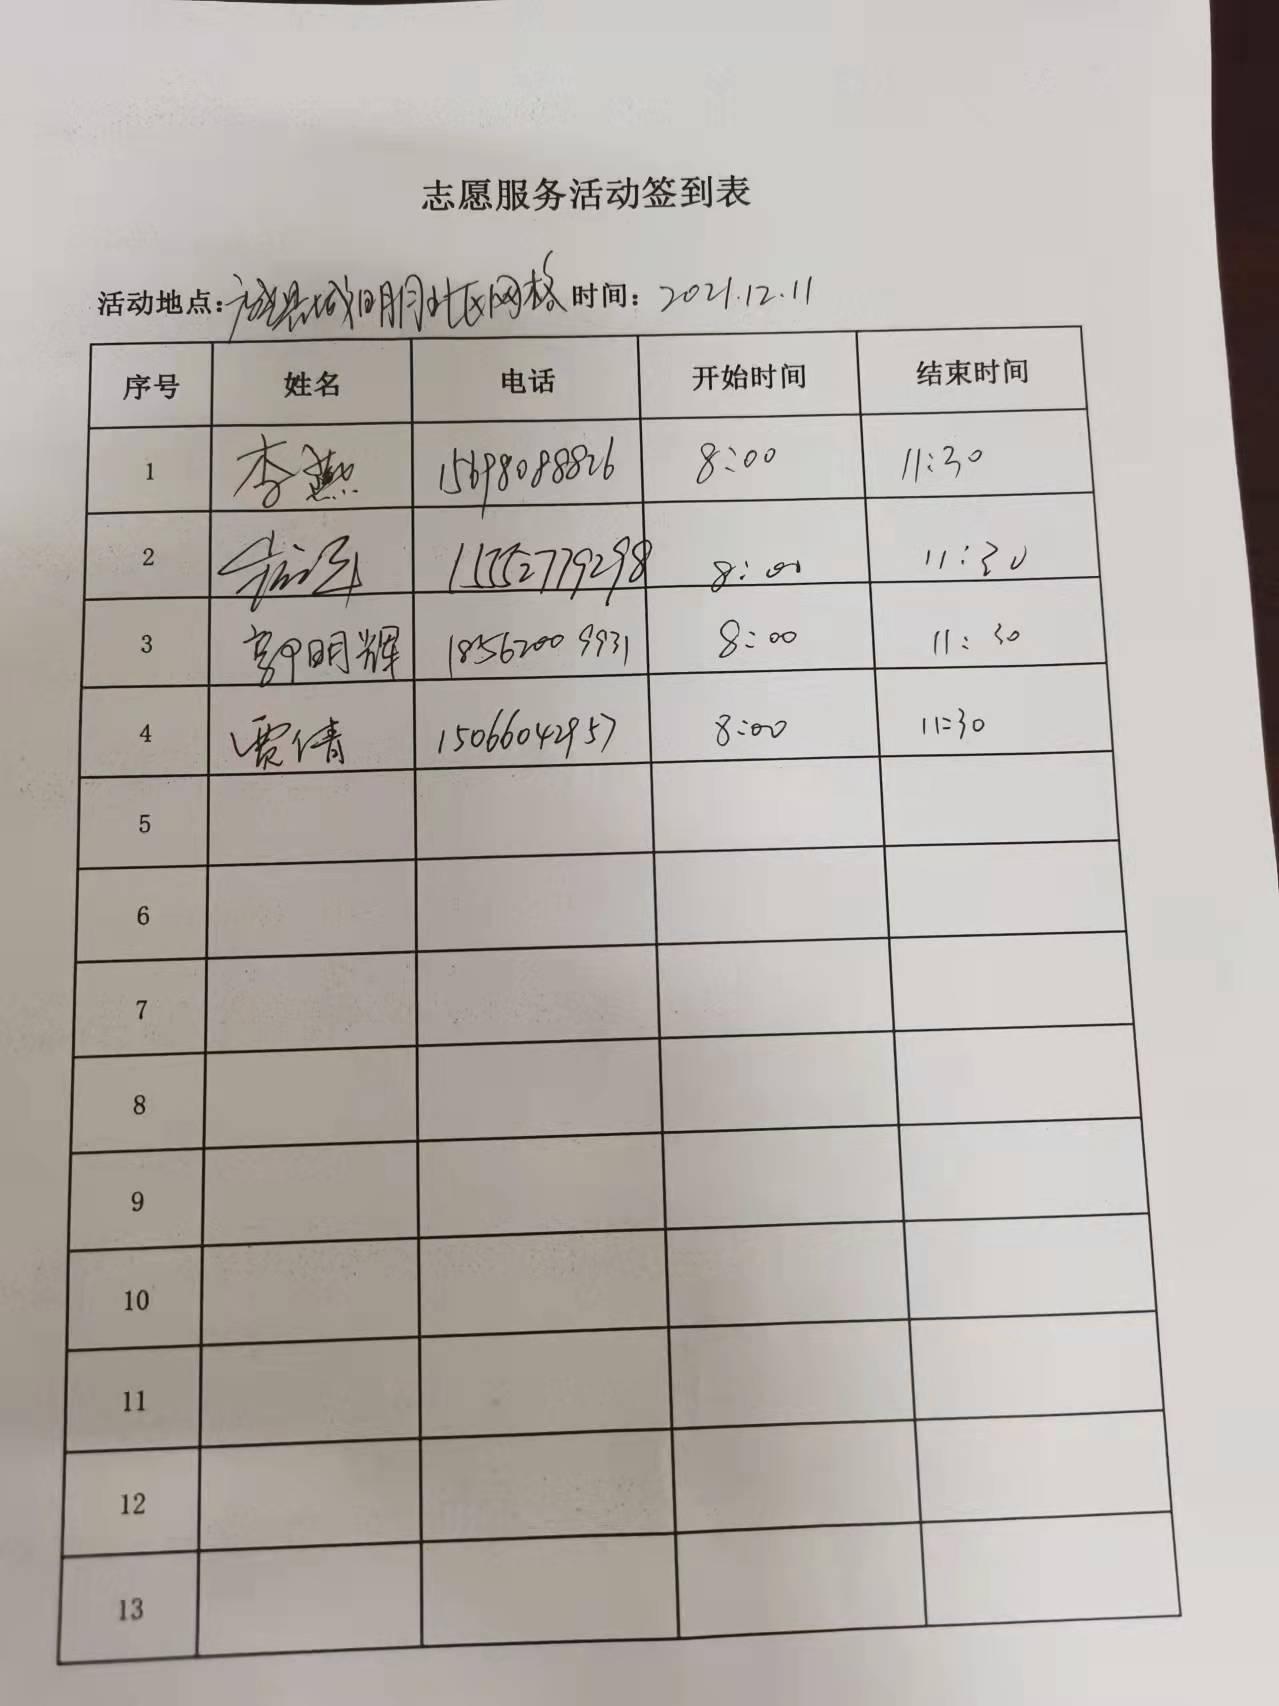 志愿服务活动签到表
活动地点：城阳明月社区网格 时间：2021.12.11
序号 姓名 电话 开始时间 结束时间
1 李燕 15698088826 8:00 11:30
2 15552779298 8:00 11:30
3 郭明辉 18562009931 8:00 11:30
4 贾倩 15066042957 8:00 11:30
5
6
7
8
9
10
11
12
13